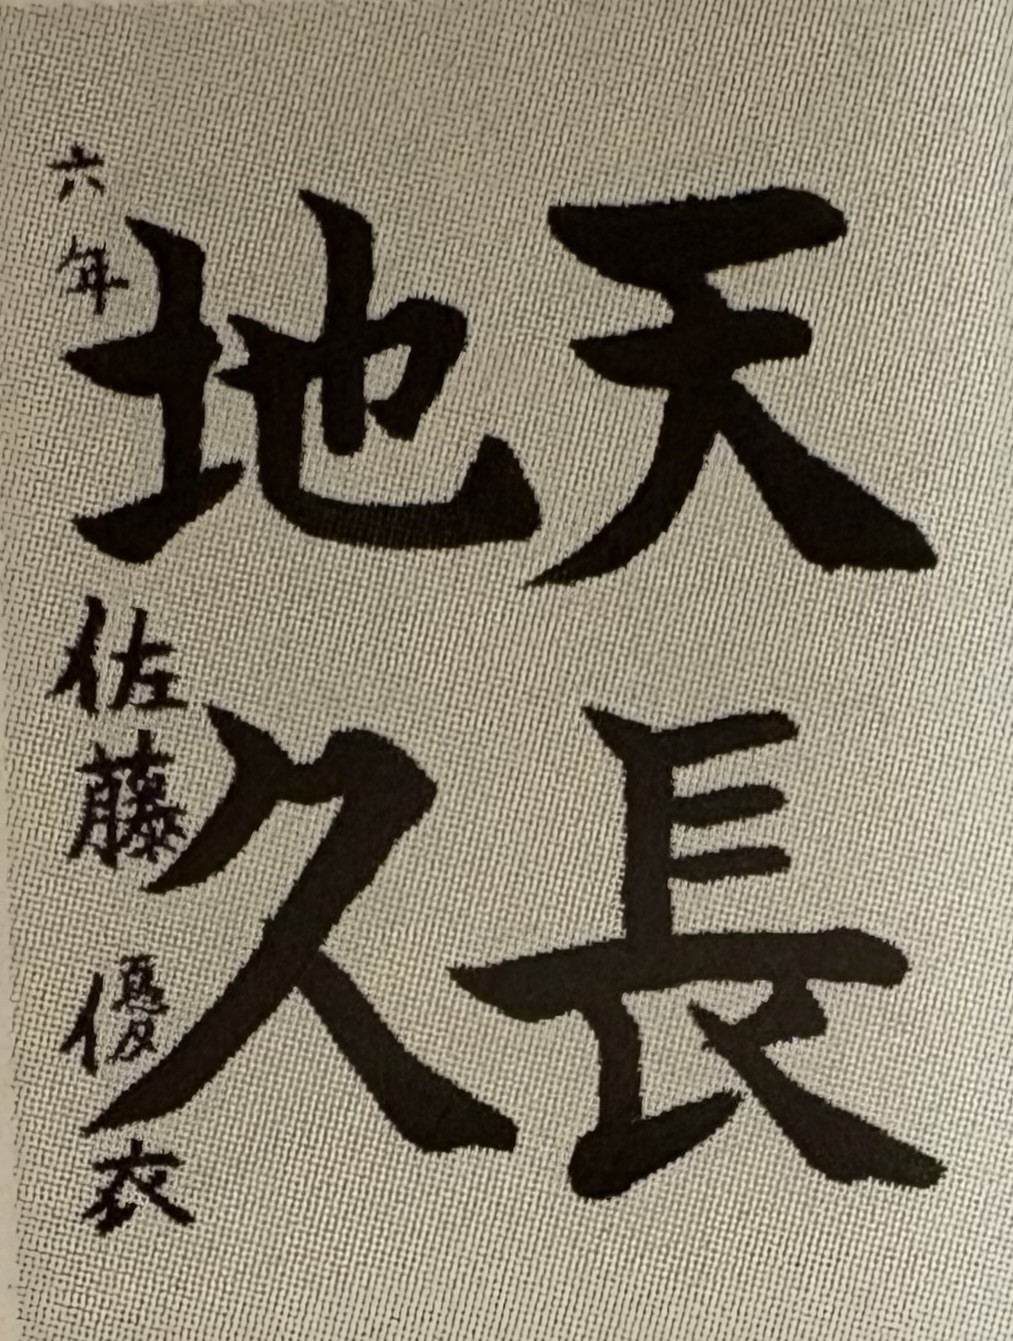 天長
地久
六年 佐藤優衣